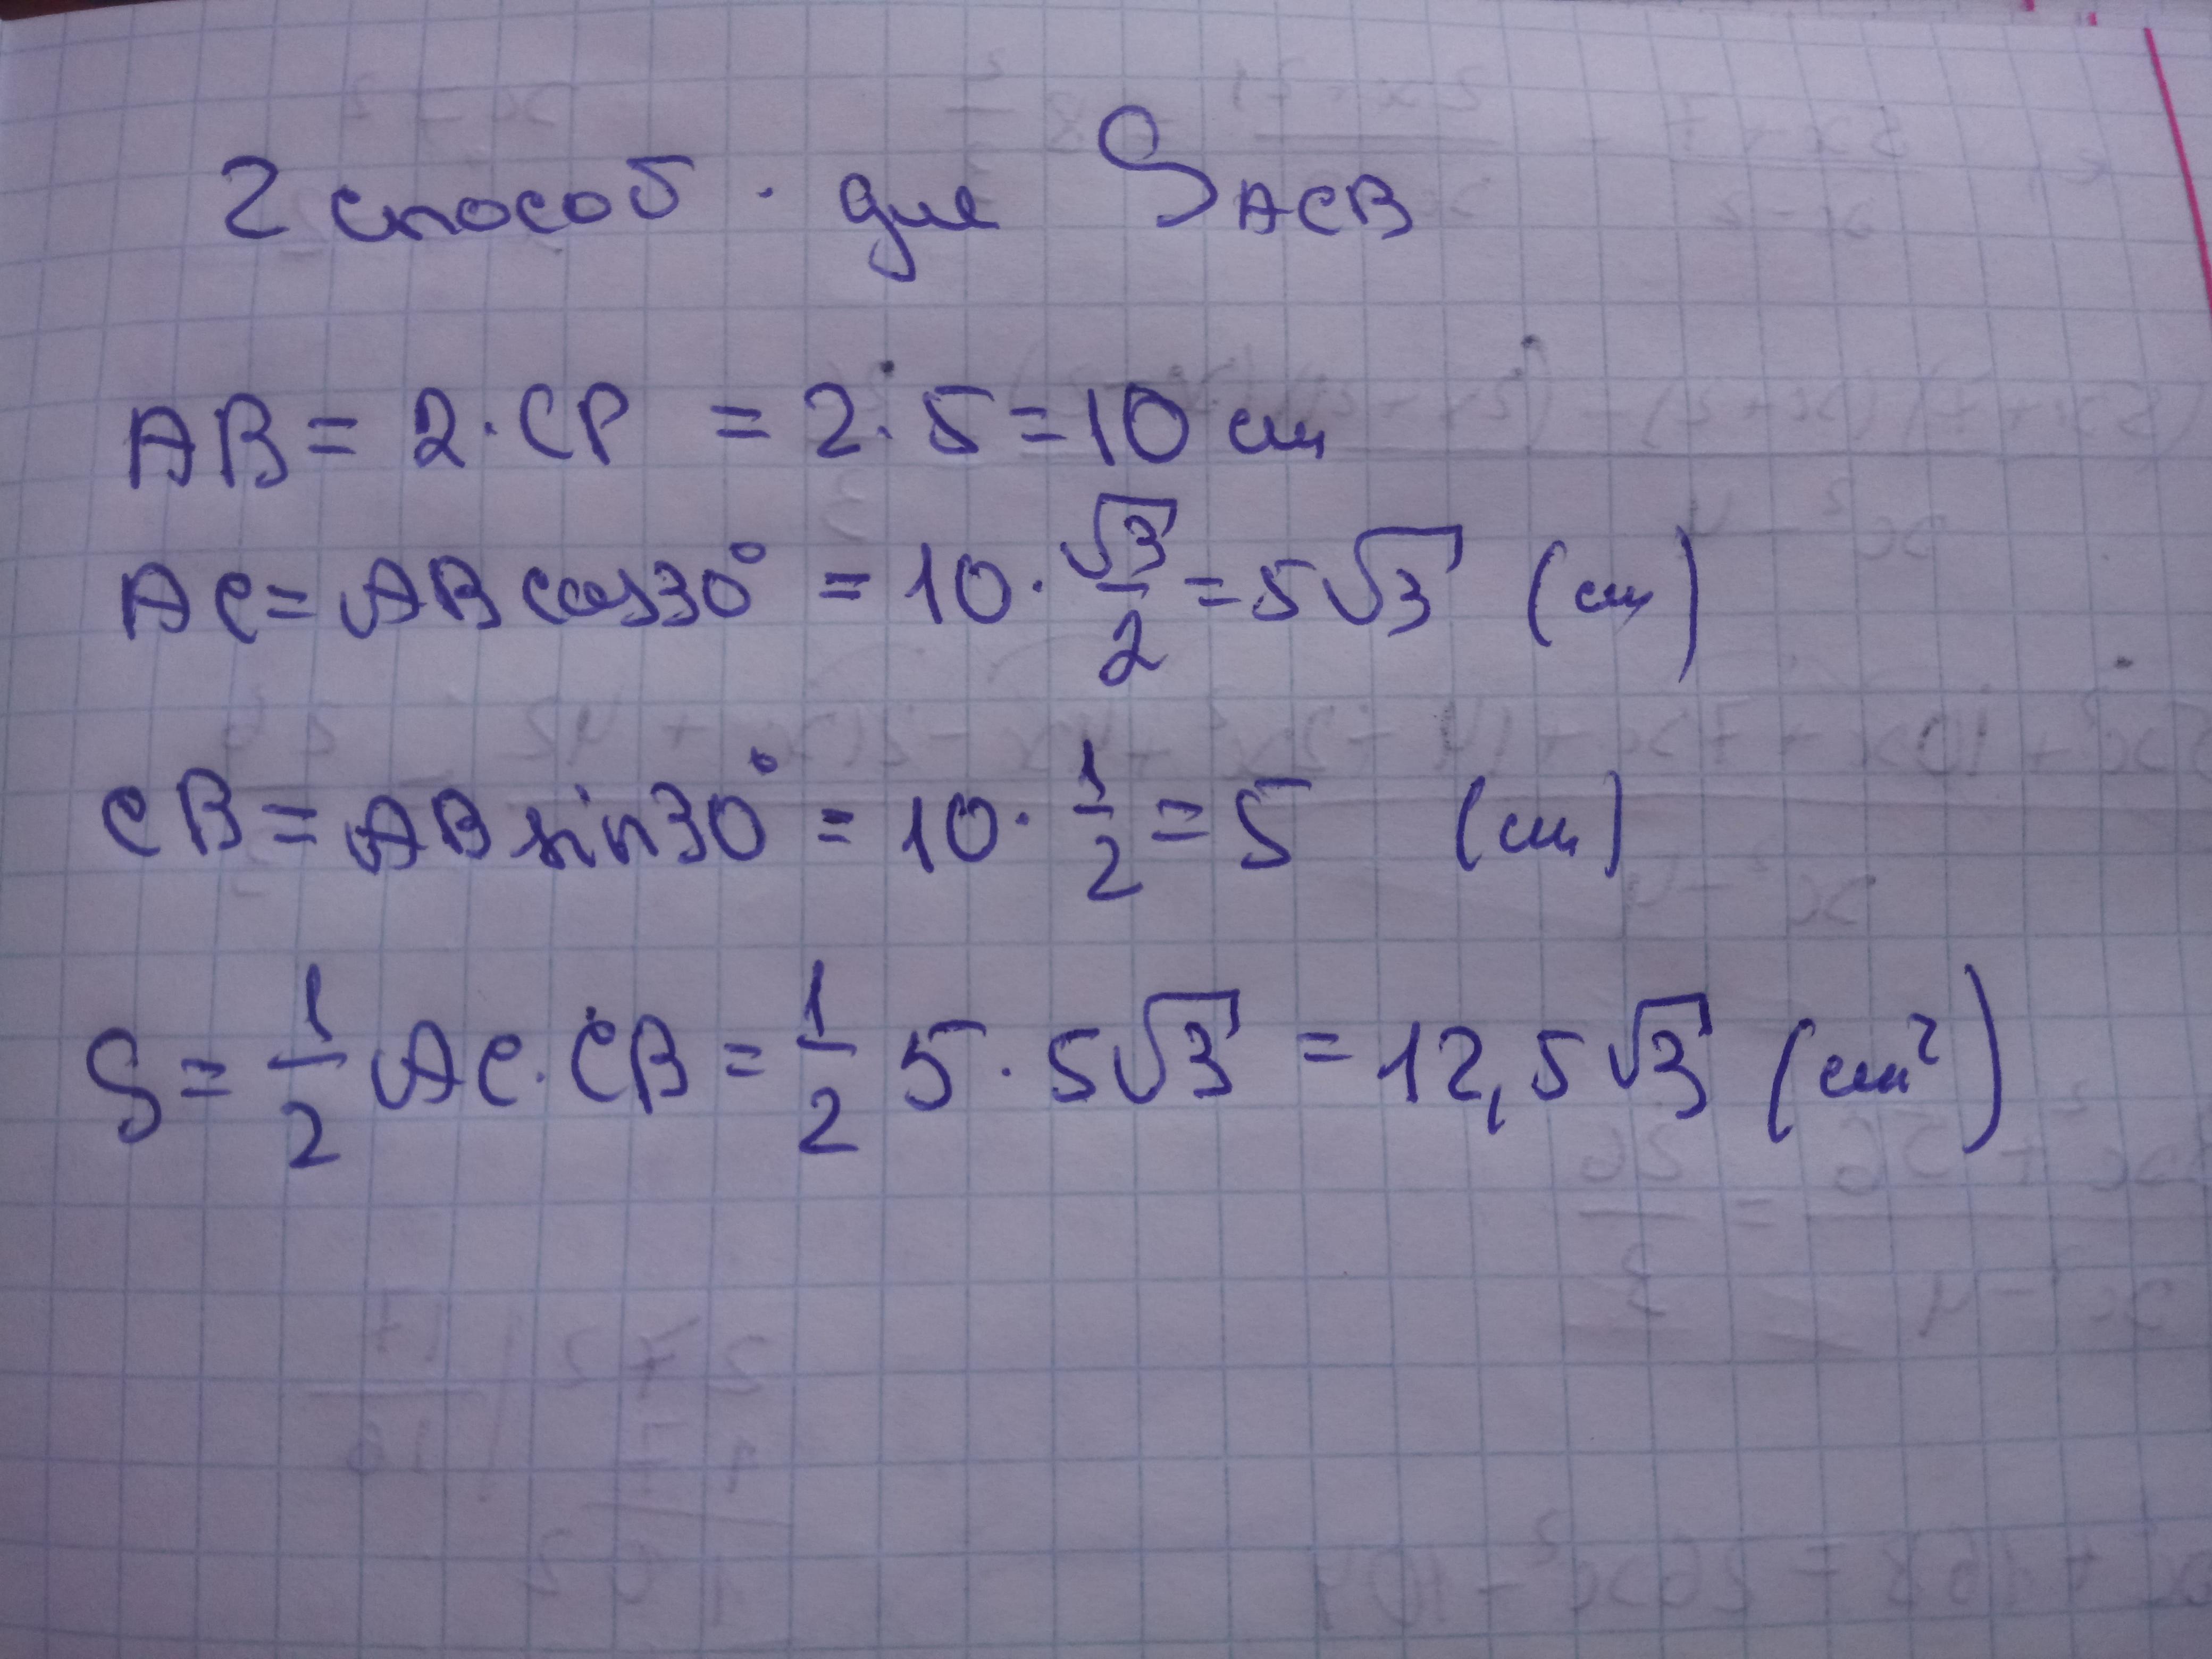 2 способ. для S ACB
AB = 2·CP = 2·5 = 10 см
AC = AB cos30° = 10·√3/2 = 5√3 (см)
CB = AB sin30° = 10·1/2 = 5 (см)
S = 1/2 AC·CB = 1/2 5·5√3 = 12,5√3 (см²)